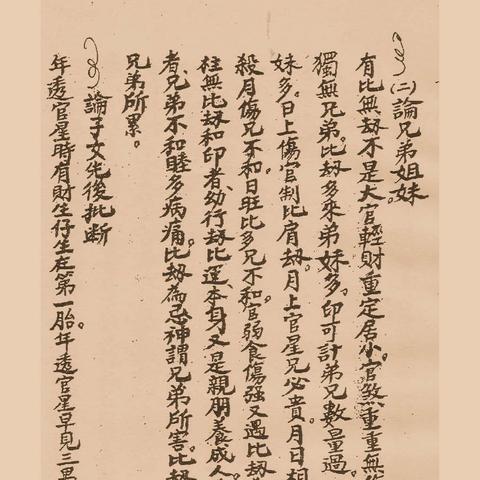 (二)論兄弟姐妹
有比無刼不是大。官輕財重定居小。官煞重重無
獨無兄弟。比刼多來弟妹多。印可計弟兄數量過。
妹多。日上傷官制比肩刼。月上官星兄必貴。月日相
殺月傷兄不和。日旺比多兄不和。官弱食傷强又遇比刼
往無比刼和印者、幼行刼比運、本身又是親朋養成人
者、兄弟不和睦多病痛。比刼為忌神謂兄弟所害。比刼
兄弟所累。
論子女先後批断
年透官星時有財生仔生在第一胎。年透官星早見三